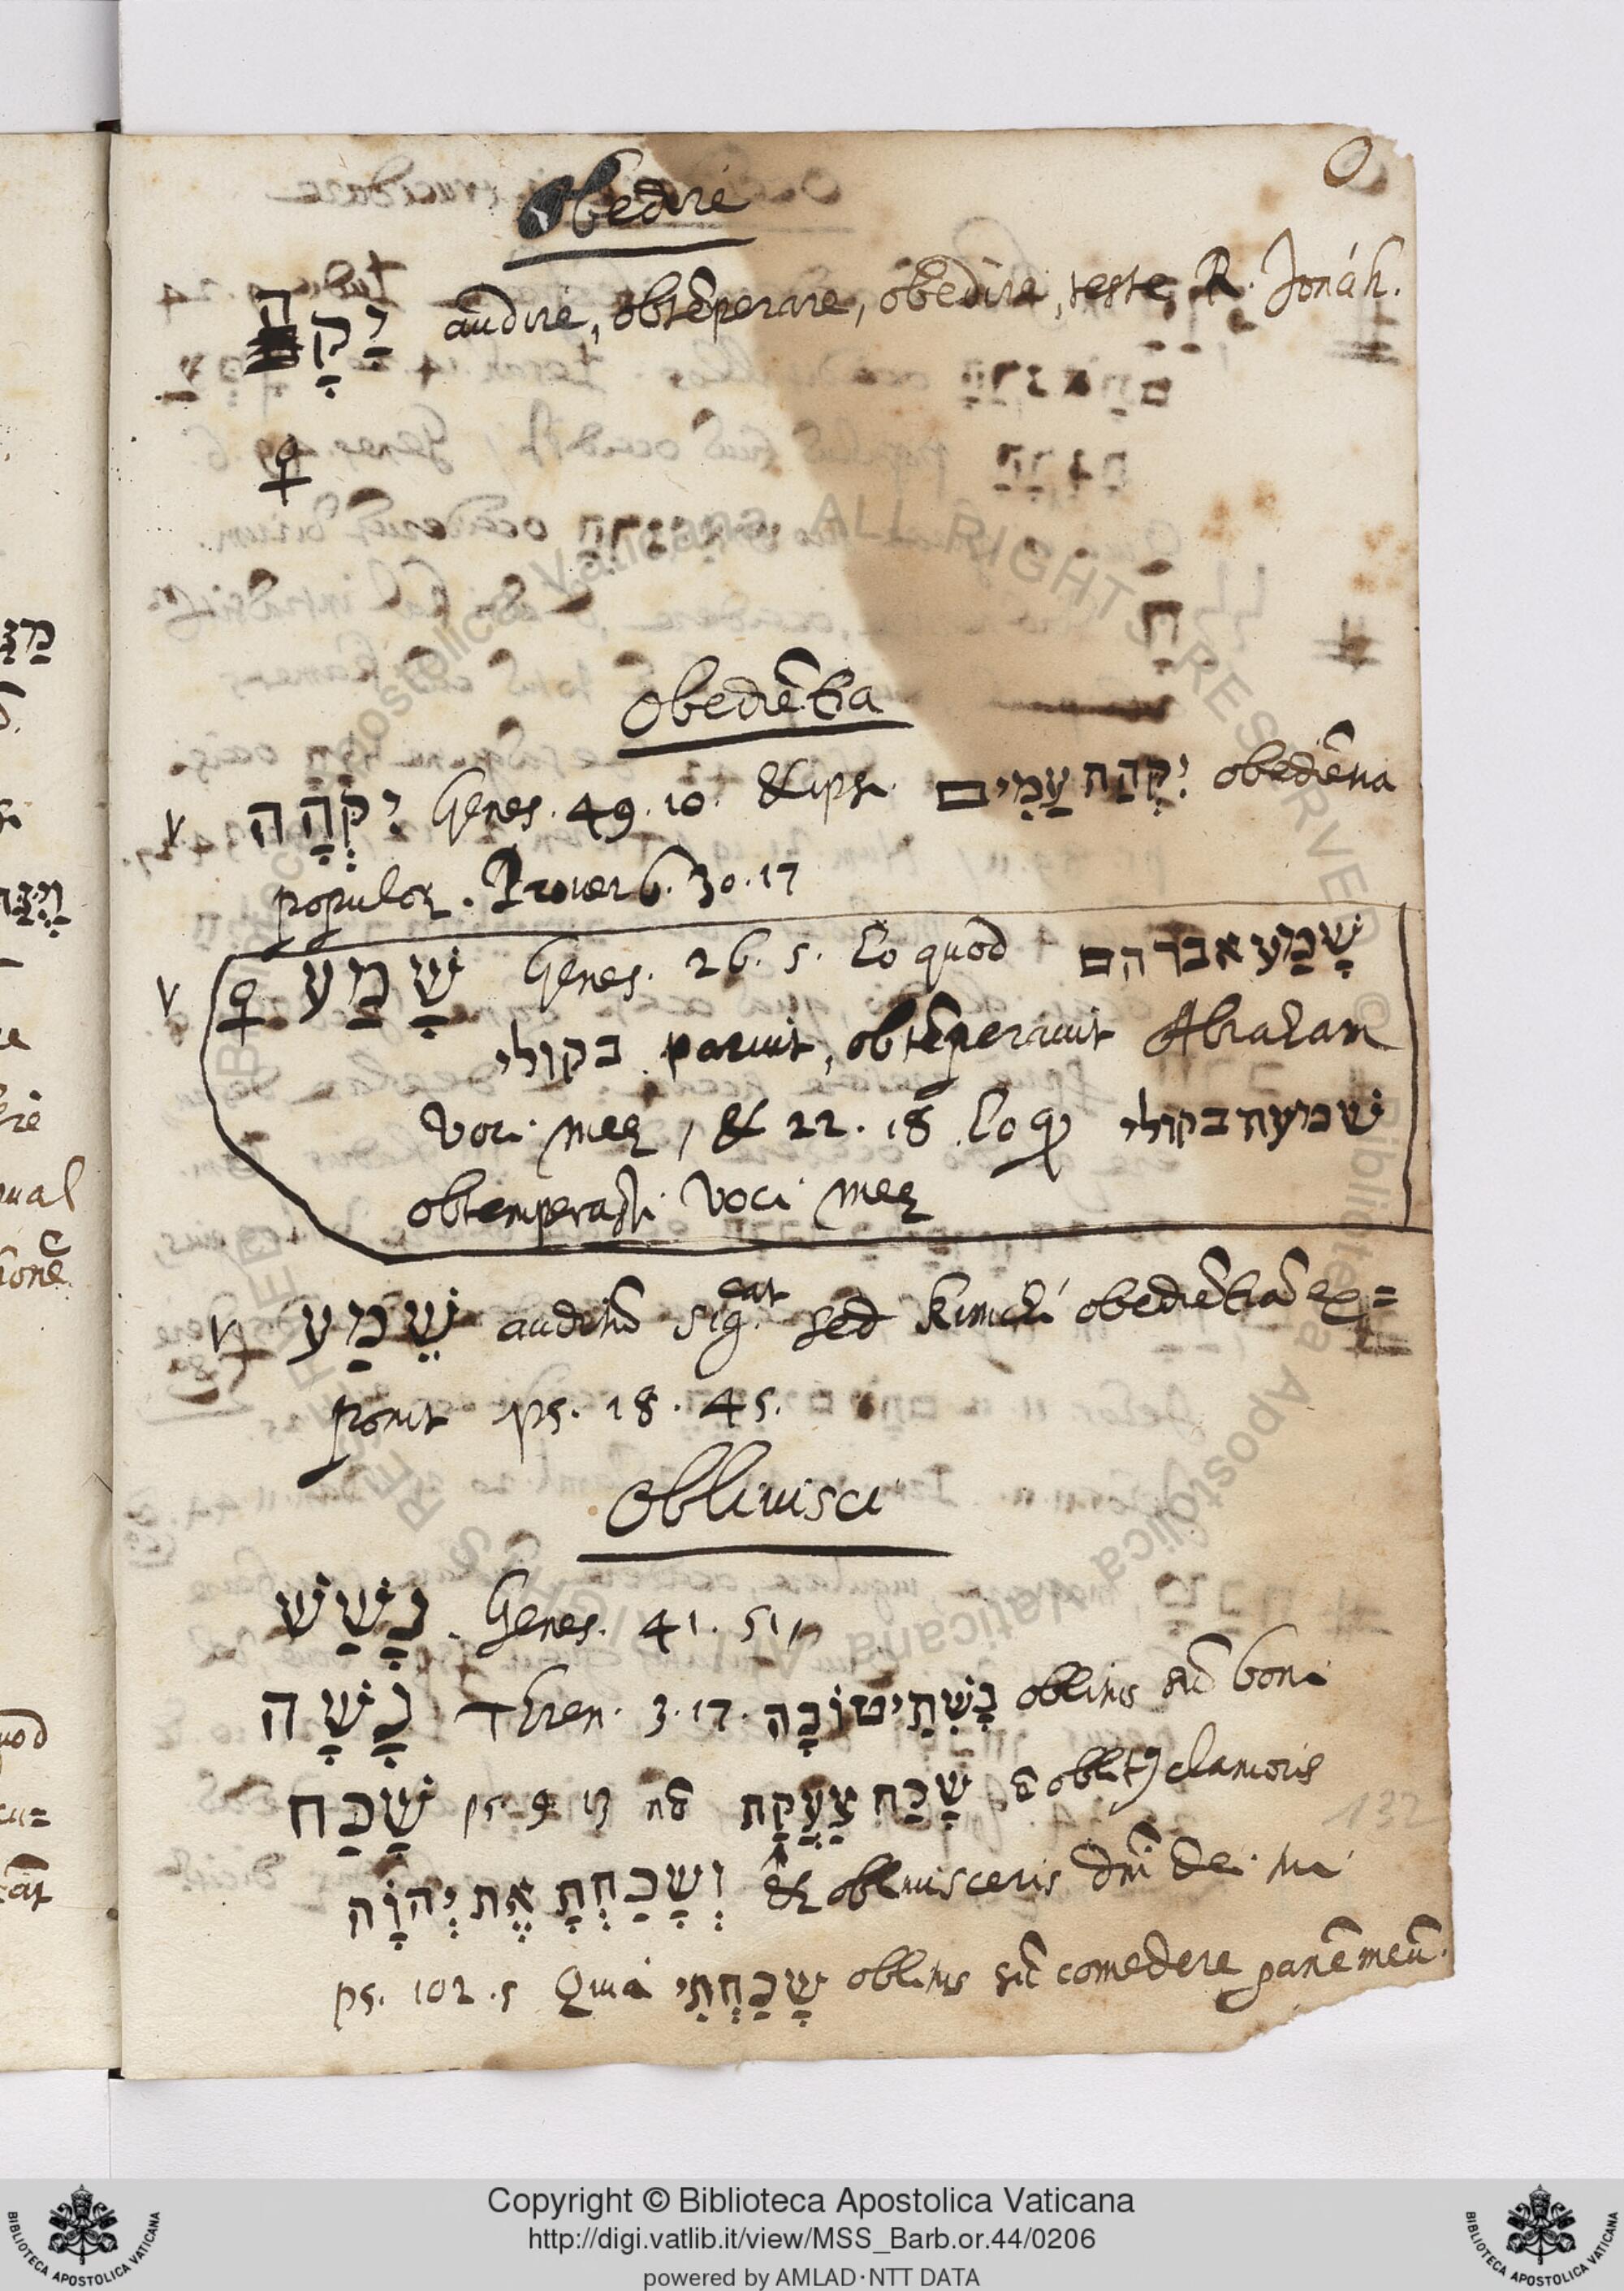 O
Obedire
יַקָה audire, obtẽperare, obedire, teste, R. Jonáh.
♀
Obediẽtia
v יִקְּהָה Genes. 49.10. & ipsi יִקְּהַת עַמִים obediẽtia
populoꝝ. Proverb. 30.17
v ♀ שָׁמַע Genes. 26.5. Eo quod שָׁמַע אברהם
בקולי paruit, obtẽperavit Abraham
voci meę, & 22.18 Eo ꝙ שמעת בקולי
obtemperasti voci meę
v שֵׁמַע auditũ sig.cat sed Kimchi obediẽtiã ex=
ponit ps. 18.45.
Oblivisci
נָשַׁשׁ. Genes. 41.51
נָשָׁה Thren. 3.17. נָשִׁתִי טוֹבָה oblitus sũ boni
שָׁכַח ps. 9.13 nõ שָׁכַח צַעֲקַת ẽ oblitꝰ clamoris
וְשָׁכַחְתָ אֶת יְהוָֹה & oblivisceris dñi dei tui
ps. 102.5 Quia שָׁכַחְתִי oblitus sũ comedere panẽ meũ.
132
Copyright © Biblioteca Apostolica Vaticana
http://digi.vatlib.it/view/MSS_Barb.or.44/0206
powered by AMLAD·NTT DATA
BIBLIOTECA APOSTOLICA VATICANA
BIBLIOTECA APOSTOLICA VATICANA